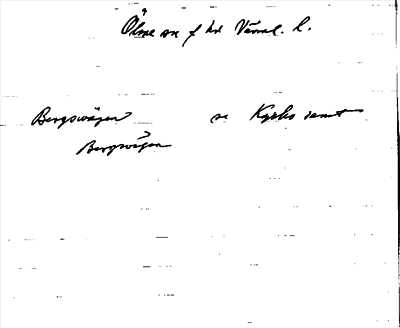 Ölme sn f hd Värml. l.
Bergsvägen se Kyrko samt
Bergvägen